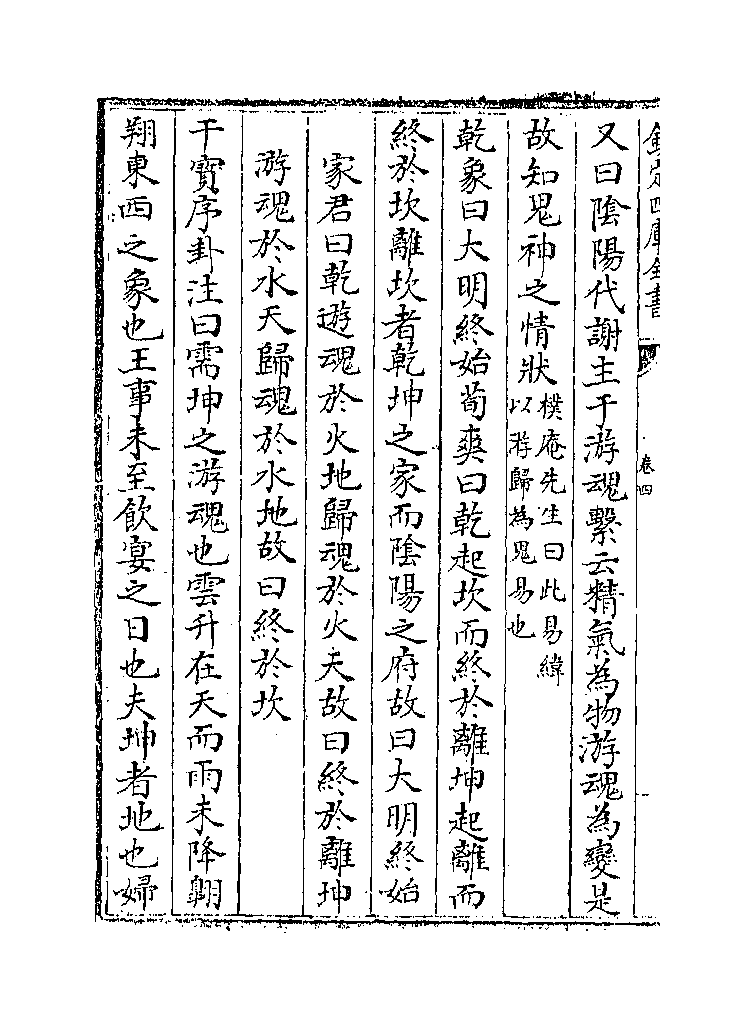 欽定四庫全書
卷四
又曰陰陽代謝主于游魂繫云精氣為物游魂為變是
故知鬼神之情狀樸庵先生曰此易緯
以游歸為鬼易也
乾彖曰大明終始荀爽曰乾起坎而終於離坤起離而
終於坎離坎者乾坤之家而陰陽之府故曰大明終始
家君曰乾遊魂於火地歸魂於火天故曰終於離坤
游魂於水天歸魂於水地故曰終於坎
干寶序卦注曰需坤之游魂也雲升在天而雨未降翱
翔東西之象也王事未至飲宴之日也夫坤者地也婦